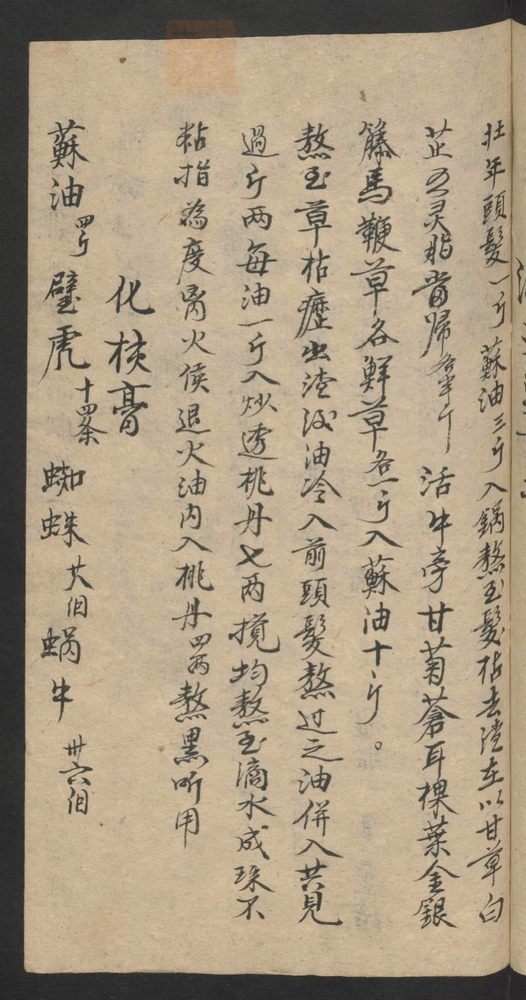 壯年頭髮一斤蘇油三斤入鍋熬至髮枯去渣在以甘草白
芷五灵脂當歸各半斤活牛旁甘菊蒼耳棵葉金銀
籐馬鞭草各鮮草各一斤入蘇油十斤。
熬至草枯瀝出渣滓油冷入前頭髮熬过之油併入共見
過斤两每油一斤入炒透桃丹七两搅均熬至滴水成珠不
粘指為度离火侯退火油内入桃丹四两熬黑听用
化核膏
蘇油四斤壁虎十四条蜘蛛廿八個蜗牛卅六個